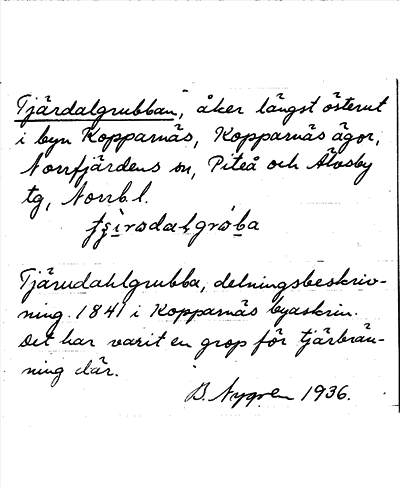 Tjärdalgrubban, åker längst österut
i byn Kopparnäs, Kopparnäs ägor,
Norrfjärdens sn, Piteå och Älvsby
tg, Norrb. l.
Tjärudahlgrubba, delningsbeskriv-
ning 1841 i Kopparnäs byaskrin.
Det har varit en grop för tjärbrän-
ning där.
B. Nygren 1936.